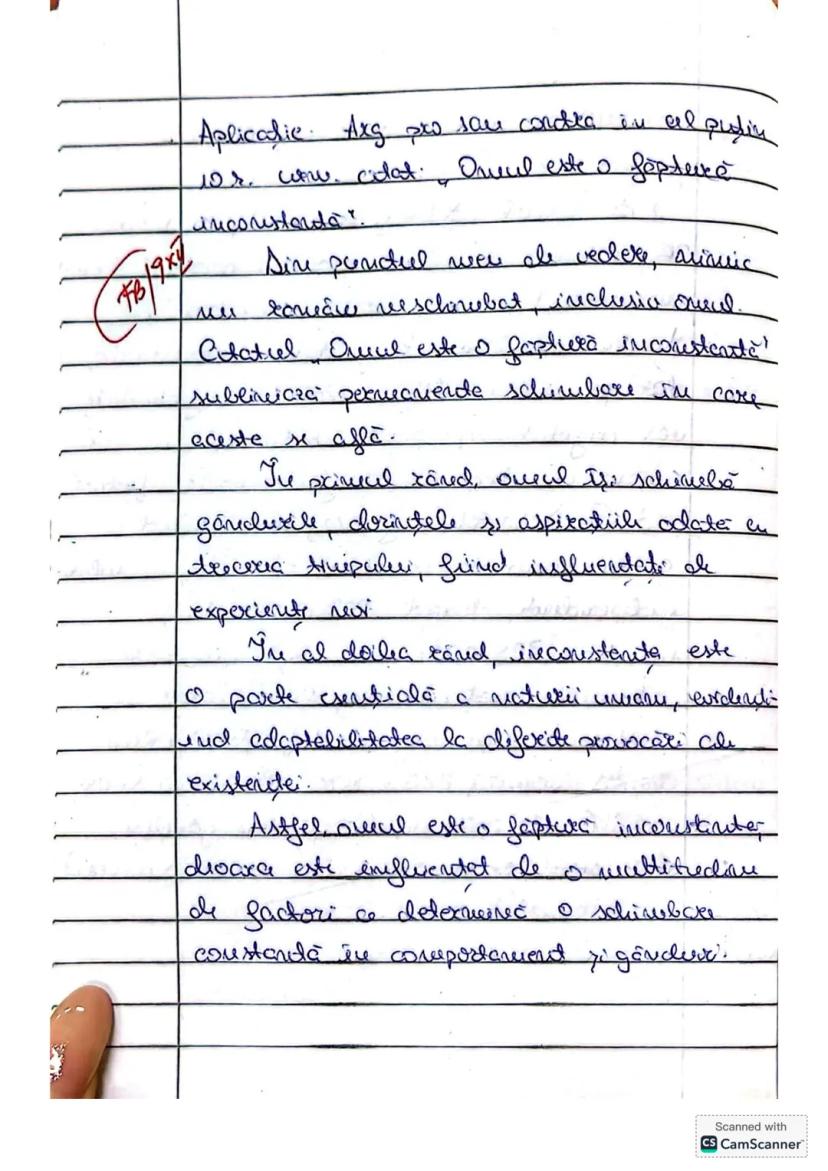 Aplicație. Arg pro sau contra în cel puțin
10 r. urm. citat: „Omul este o făptură
inconstantă".
FB/9XII
Din punctul meu de vedere, nimic
nu rămâne neschimbat, inclusiv omul.
Citatul „Omul este o făptură inconstantă"
subliniază permanenta schimbare în care
aceste se află.
În primul rând, omul își schimbă
gândurile, dorințele și aspirațiile odată cu
trecerea timpului, fiind influențați de
experiențe noi
În al doilea rând, inconstanța este
o parte esențială a naturii umane, evidenți-
ind adaptabilitatea la diferite provocări ale
existenței.
Astfel, omul este o făptură inconstantă,
dioarece este influențat de o multitudine
de factori ce determină o schimbare
constantă în comportament și gânduri.
Scanned with
CS CamScanner